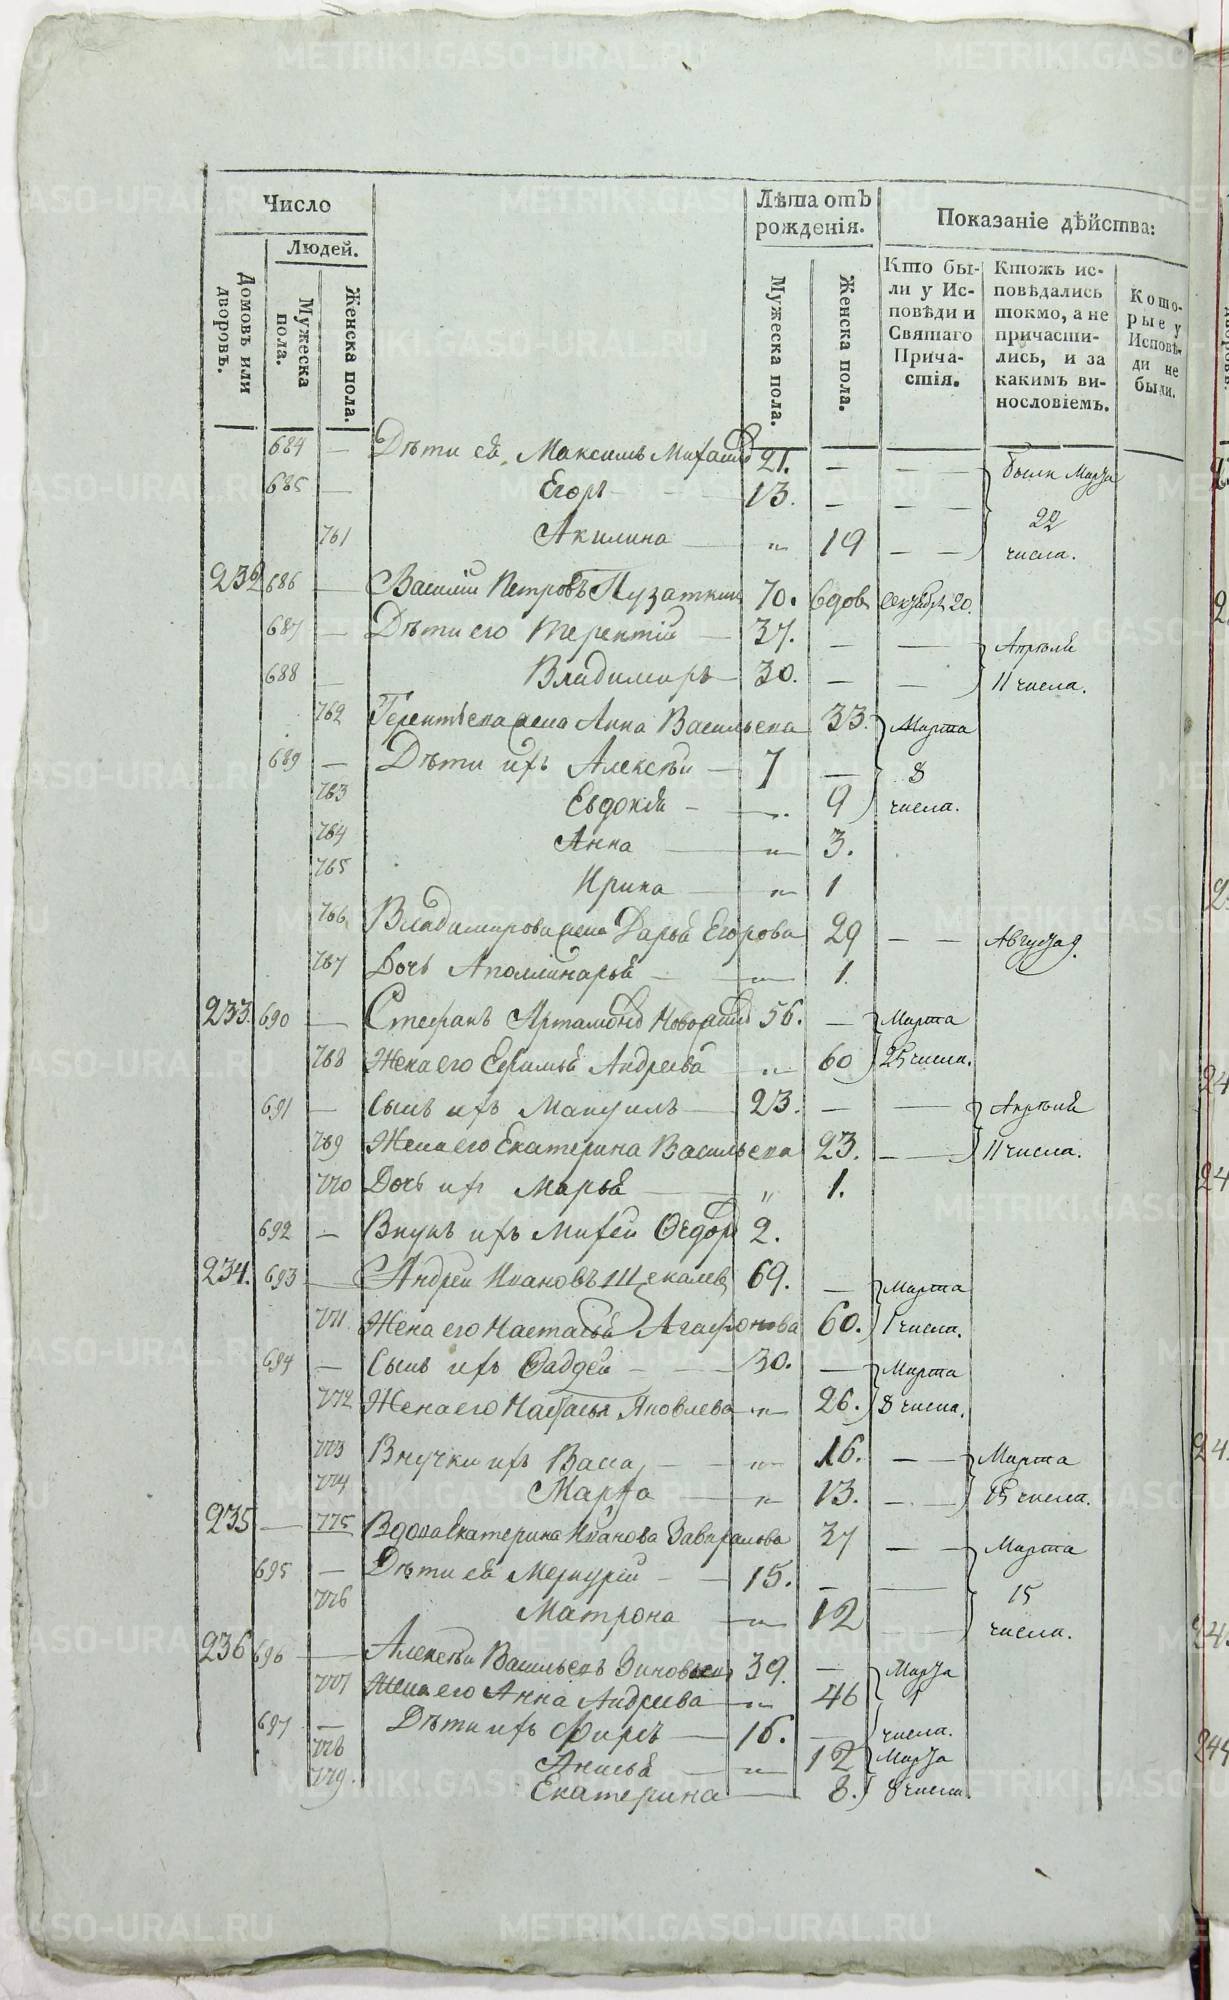 Число
Людей.
Домовъ или дворовъ.
Мужеска пола.
Женска пола.
Лѣта отъ рожденія.
Мужеска пола.
Женска пола.
Показаніе дѣйства:
Кто бы-
ли у Ис-
повѣди и
Святаго
Прича-
стія.
Ктожъ ис-
повѣдались
токмо, а не
причасти-
лись, и за
какимъ ви-
нословіемъ.
Кото-
рые у
Исповѣ-
ди не
были.
684 — Дѣти ея Максимъ 21. — — —
были Марта
685 — Егоръ 13. — — —
22
761 Акилина — „ 19 — —
числа.
232 686 — Василій Петровъ Пузаткин 70. вдов 20.
687 — Дѣти его Терентій — 37. — —
Апрѣля
688 — Владимиръ — 30. — —
11 числа.
762 жена Анна Васильева 33.
Марта
689 — Дѣти ихъ Алексѣй — 7 —
8
763 Евдокія — 9
числа.
764 Анна — „ 3.
765 Ирина — „ 1
766 Владимирова жена Дарья Егорова 29 — —
Августа 9.
767 Дочь Аполлинарья — 1.
233. 690 — Стефанъ 56. —
Марта
768 Жена его Ефимья Андреева „ 60
25 числа.
691 — Сынъ ихъ 23. — —
Апрѣля
769 Жена его Екатерина Васильева 23. — —
11 числа.
770 Дочь их Марья — „ 1.
692 — Внукъ ихъ 2.
234. 693 — Андрей Ивановъ 69. —
Марта
771 Жена его Настасья Агафонова 60.
1 числа.
694 — Сынъ ихъ Фаддей — 30. —
Марта
772 Жена его Настасья Яковлева „ 26.
8 числа.
773 Внучки ихъ Васса — „ 16. — —
Марта
774 Марфа — „ 13. — —
15 числа.
235 — 775 Вдова Екатерина Иванова 37 — —
Марта
695 — Дѣти ея Меркурій — 15. — —
15
776 Матрона — „ 12 — —
числа.
236 696 — Алексѣй Васильевъ 39. —
Марта
777 Жена его Анна Андреева — „ 46
1
697 — Дѣти ихъ Фирсъ — 16. —
числа.
778 Анисья — „ 12
Марта
779. Екатерина — 8.
8 числа.
METRIKI.GASO-URAL.RU